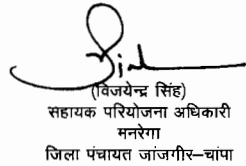 (विजयेन्द्र सिंह)
सहायक परियोजना अधिकारी
मनरेगा
जिला पंचायत जांजगीर–चांपा